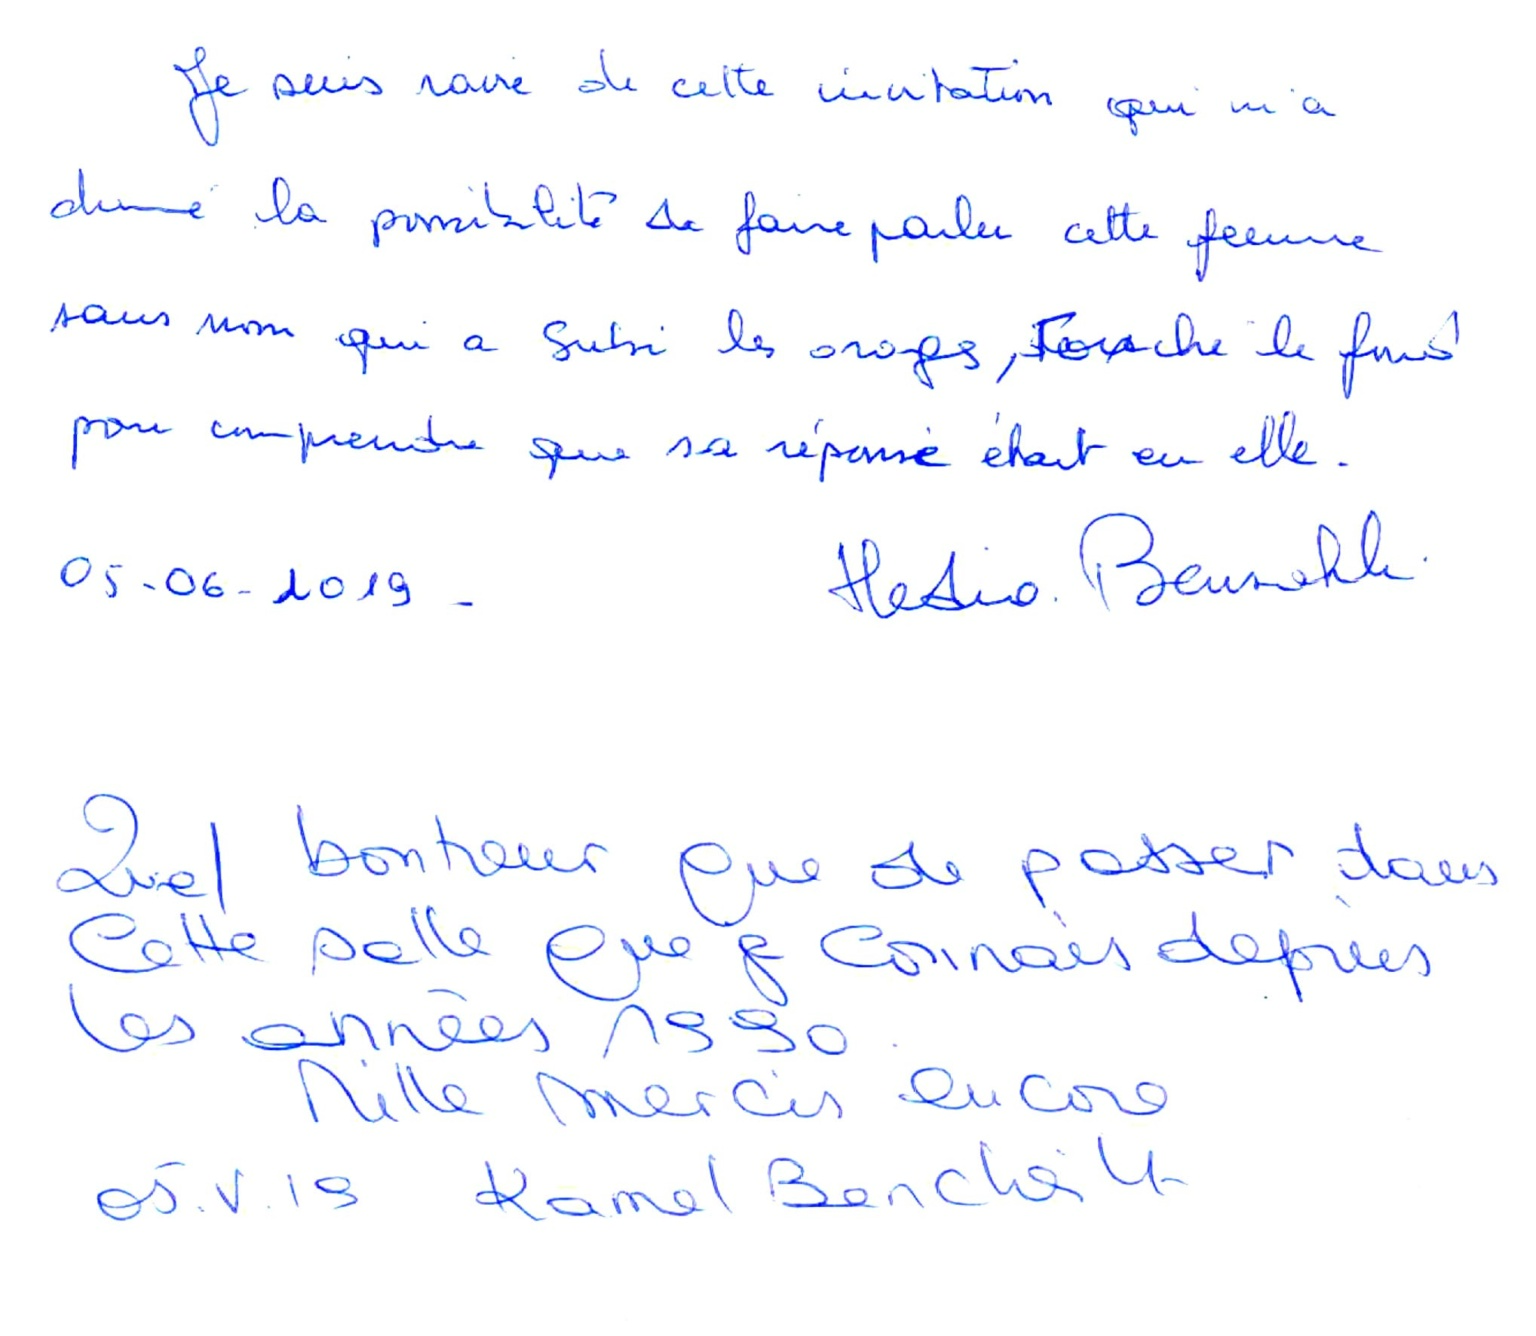 Je suis ravie de cette invitation qui m'a
donné la possibilité de faire parler cette femme
sans nom qui a subi les orages, touché le fond
pour comprendre que sa réponse était en elle.
05-06-2019-
Hedia. Bensahli
Quel bonheur que de passer dans
Cette salle que je connais depuis
les années 1990.
Mille mercis encore
05.V.19 Kamel Bencheikh